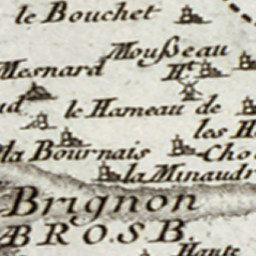 le Bouchet
Moußeau
Mesnard Ht
ud le Hameau de
les H
la Bournais Cho
la Minaudr
Brignon
BROSB
Haute